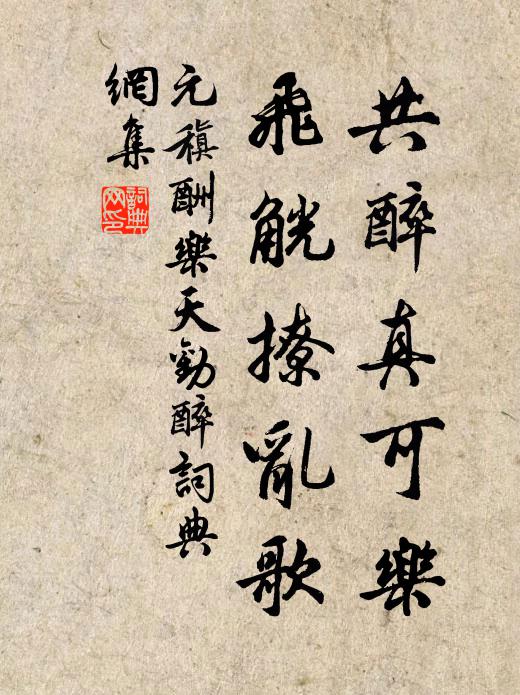 共醉真可樂
飛觥撩亂歌
元稹酬樂天勸醉詞典
網集
詞典網印